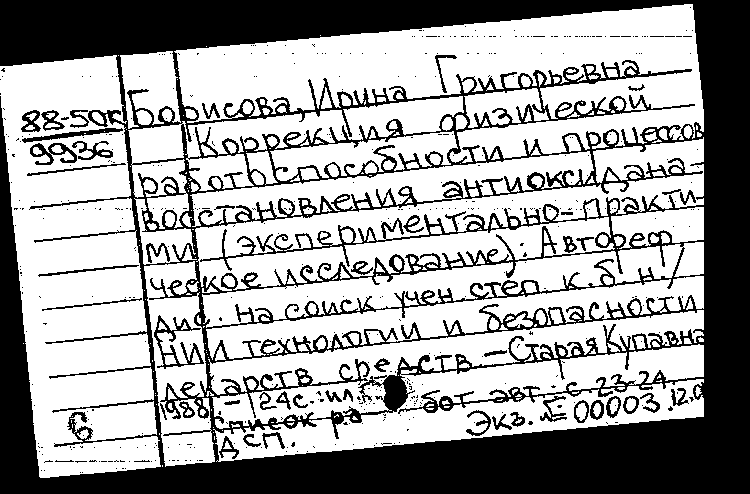 88-50к
9936
Борисова, Ирина Григорьевна.
Коррекция физической
работоспособности и процессов
восстановления антиоксидана-
ми (экспериментально-практи-
ческое исследование): Автореф.
дис. на соиск учен. степ. к.б.н./
НИИ технологии и безопасности
лекарств. средств. – Старая Купавна
1988. – 24с.: ил
Список ра бот авт.: с. 23-24.
ДСП. Экз. № 00003
6